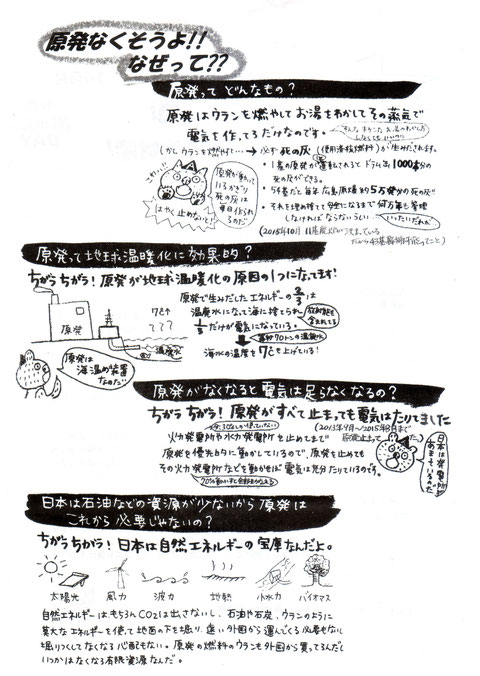 原発なくそうよ!!
なぜって??
原発って どんなもの?
原発はウランを燃やして お湯をわかして その蒸気で
電気を作ってるだけなのです。
しかし ウランを燃やせば・・・→必ず死の灰(使用済核燃料)が生みだされます。
1基の原発が運転されると ドラム缶1000本分の
死の灰ができる。
54基だと毎年 広島原爆約5万発分の死の灰
それを埋め捨てて 安全になるまで 何万年も管理
しなければならないらしい
いったいだれが
こわい!!
原発が動いて
いるかぎり
死の灰は
毎日作られ
るのだ
はやく止めないと!
原発って地球温暖化に効果的?
ちがうちがう! 原発が地球温暖化の原因の1つになってます!
原発で生みだしたエネルギーの2/3は
温廃水になって海に捨てられ
1/3だけが電気になっている。
放射能も
含まれてる
毎秒70トンの温廃水
海水の温度を7℃も上げている!
原発
7℃↑
温廃水
原発は
海温め装置
なのだ
原発がなくなると電気は足らなくなるの?
ちがう ちがう! 原発がすべて止まっても電気はたりてました
(2013年9月〜2015年8月まで
火力発電所や水力発電所を止めてまで
原発を優先的に動かしているので、原発を止めても
その火力発電所などを動かせば 電気は充分たりているのです。
日本は発電所
あまっているのだ
日本は石油などの資源が少ないから原発は
これから必要じゃないの?
ちがうちがう! 日本は自然エネルギーの宝庫なんだよ。
太陽光 風力 波力 地熱 小水力 バイオマス
自然エネルギーは、もちろんCO2は出さないし、石油や石炭、ウランのように
莫大なエネルギーを使って地面の下を掘り、遠い外国から運んでくる必要もないし
掘りつくしてなくなる心配もない。原発の燃料のウランも外国から買ってるんだし
いつかはなくなる有限資源なんだ。